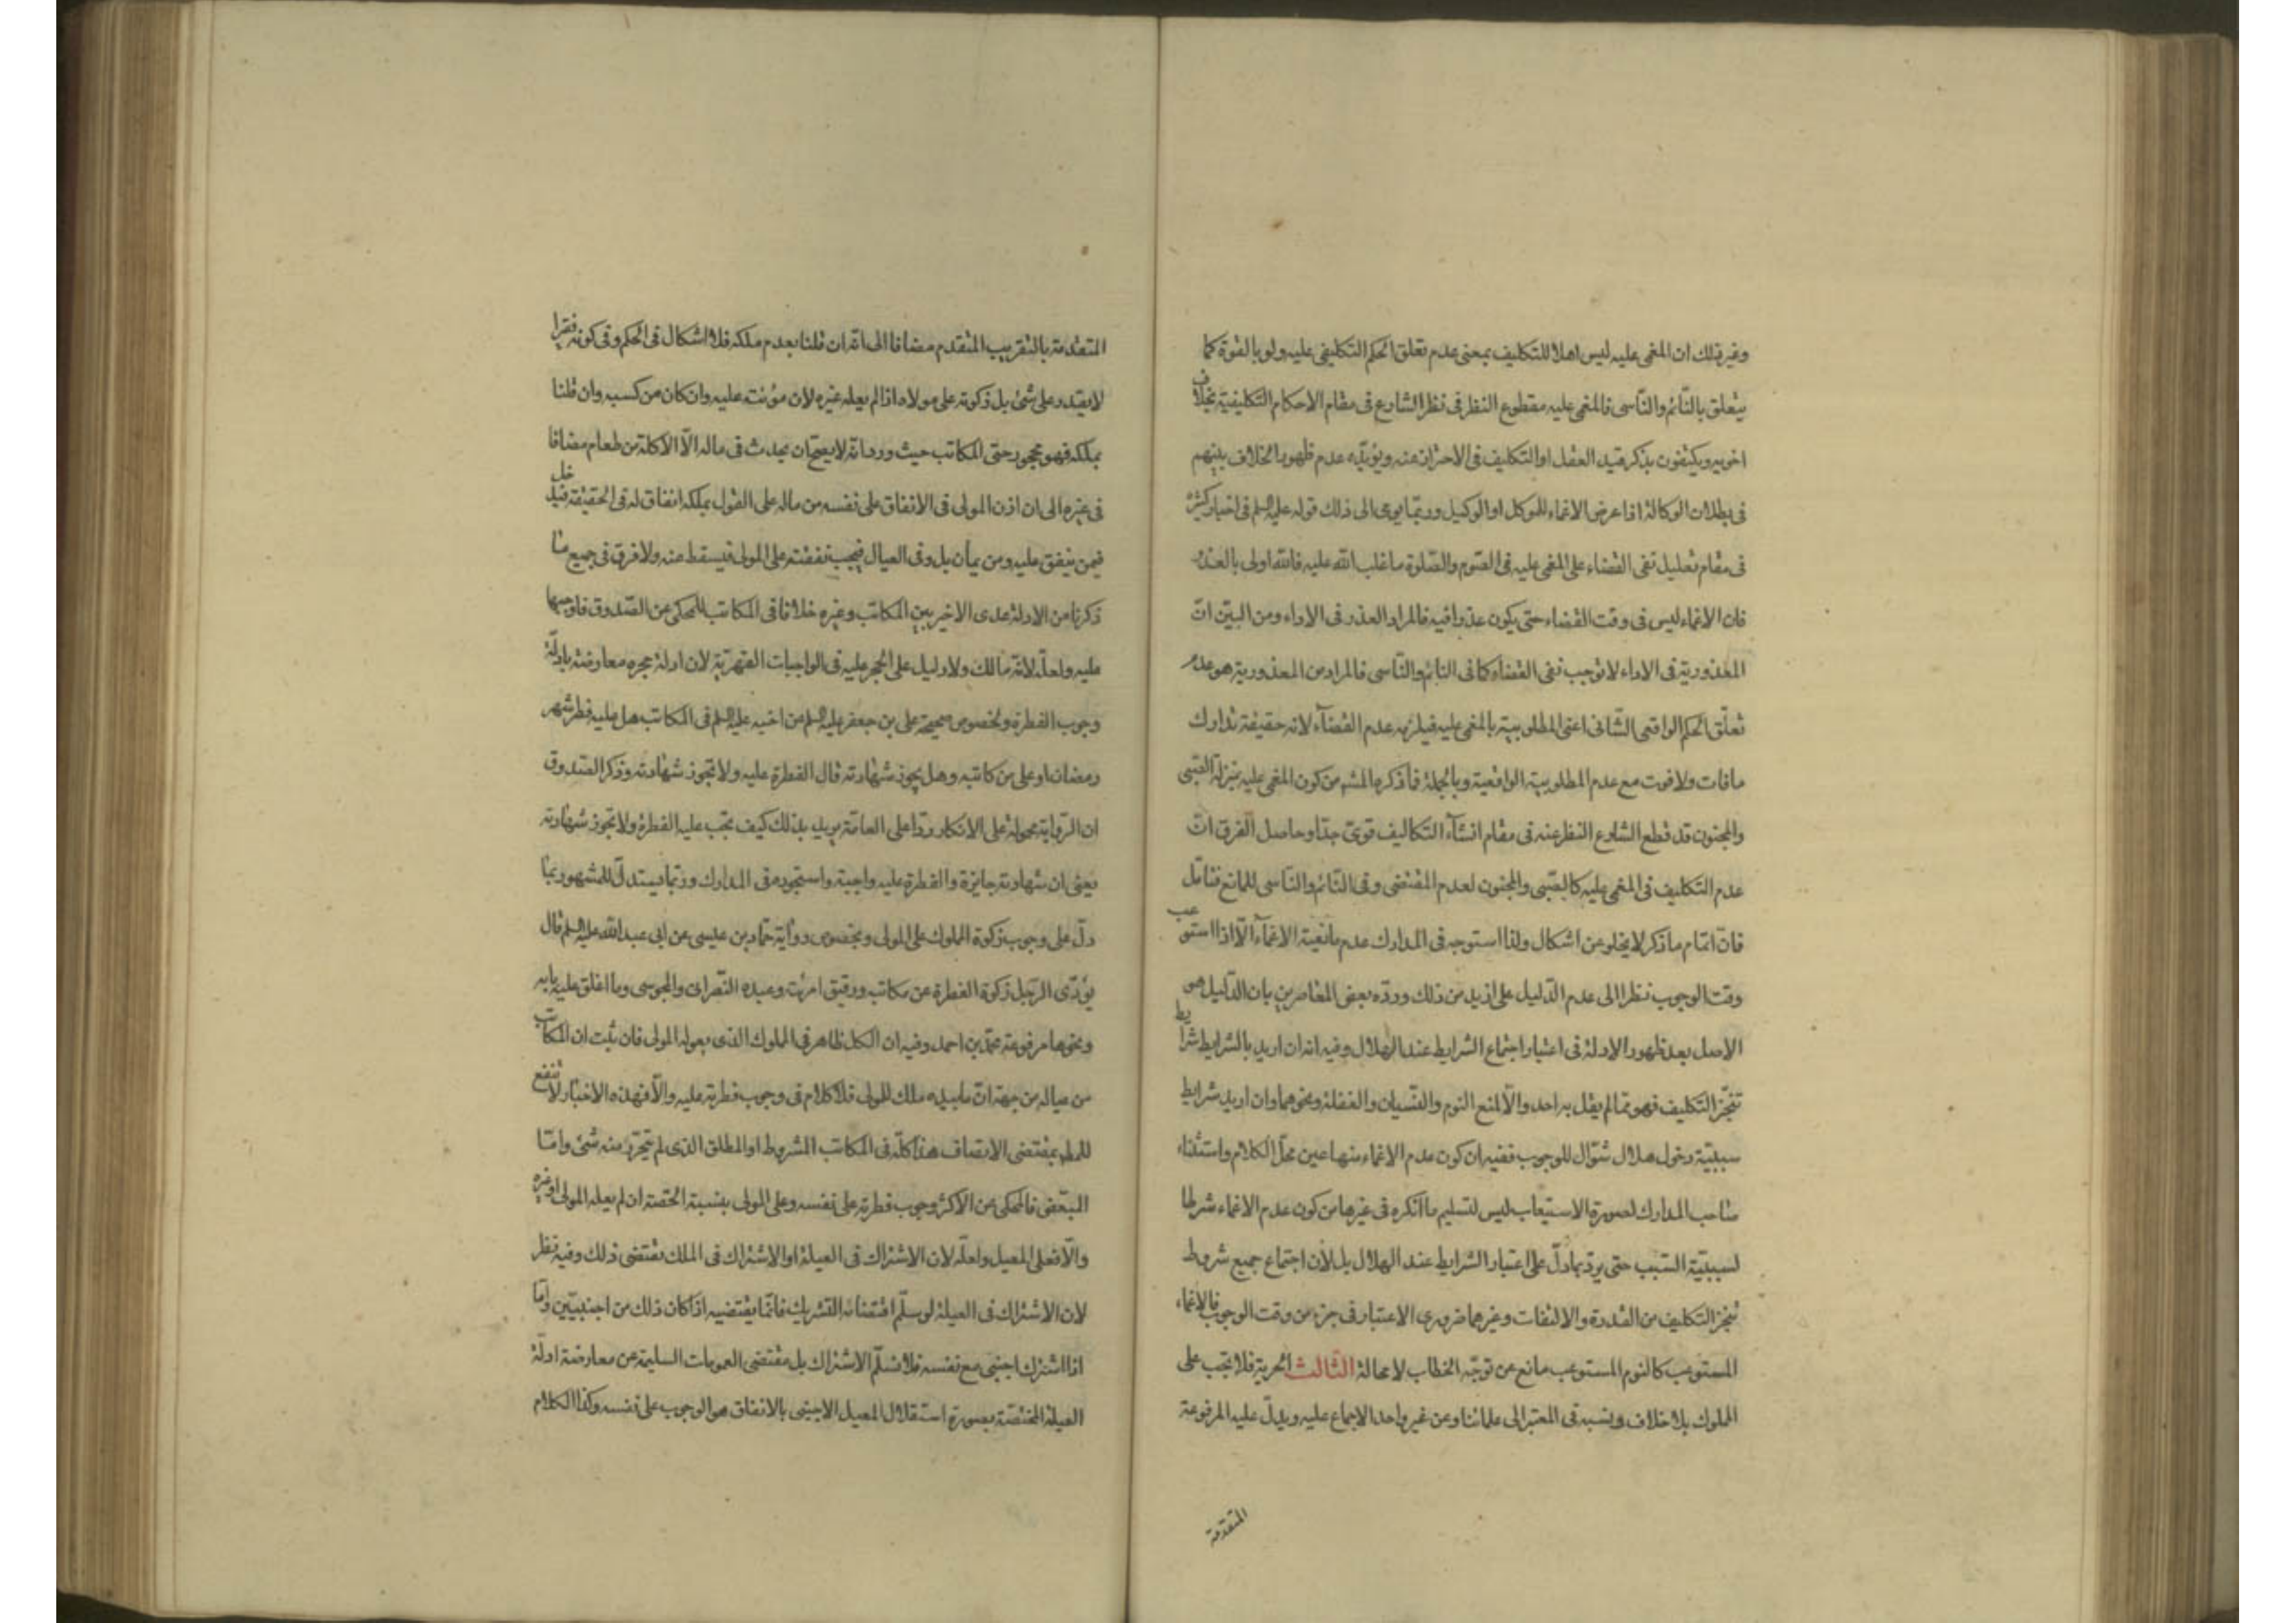 وغير ذلك ان المغمى عليه ليس اهلا للتكليف بمعنى عدم تعلق الحكم التكليفى عليه ولو بالقوة كما
يتعلق بالنّائم والنّاسى فالمغمى عليه مقطوع النظر فى نظر الشارع فى مقام الاحكام التكليفية بخلاف
اخويه ويكتفون بذكر قيد العقل او التكليف فى الاحتراز عنه ويؤيّده عدم ظهور الخلاف بينهم
فى بطلان الوكالة اذا عرض الاغماء للموكل او الوكيل وربّما يومى الى ذلك قوله عليه السلم فى اخبار كثيرة
فى مقام تعليل نفى القضاء على المغمى عليه فى الصّوم والصّلوة ما غلب الله عليه فالله اولى بالعذر
فان الاغماء ليس فى وقت القضاء حتى يكون عذرا فيه فالمراد العذر فى الاداء ومن البيّن انّ
المعذورية فى الاداء لا توجب نفى القضاء كما فى النائم والنّاسى فالمراد من المعذورية هو عدم
تعلّق الحكم الواقعى الشّانى اعنى المطلوبيّة بالمغمى عليه فيلزمه عدم القضآء لانه حقيقة تدارك
ما فات ولا فوت مع عدم المطلوبية الواقعية وبالجملة فما ذكره المشهور من كون المغمى عليه بمنزلة الصّبى
والمجنون قد قطع الشارع النظر عنه فى مقام انشآء التكاليف قوىّ جدّا وحاصل الفرق انّ
عدم التكليف فى المغمى عليه كالصّبى والمجنون لعدم المقتضى وفى النّائم والنّاسى للمانع فتامّل
فانّ اتمام ما ذكر لا يخلو عن اشكال ولذا استوجه فى المدارك عدم مانعية الاغمآء الّا اذا استوعب
وقت الوجوب نظرا الى عدم الدّليل على ازيد من ذلك وردّه بعض المعاصرين بان الدّليل هو
الاصل بعد ظهور الادلة فى اعتبار اجتماع الشرايط عند الهلال وفيه انه ان اريد بالشرايط شرايط
تنجّز التكليف فهو ممّا لم يقل به احد والّا لمنع النوم والنّسيان والغفلة ونحوهما وان اريد شرايط
سببيّة دخول هلال شوّال للوجوب ففيه ان كون عدم الاغماء منها عين محلّ الكلام واستثناء
صاحب المدارك لصورة الاستيعاب ليس لتسليم ما انكره فى غيرها من كون عدم الاغماء شرطا
لسببيّة السّبب حتى يردّ بما دلّ على اعتبار الشرايط عند الهلال بل لان اجتماع جميع شروط
تنجز التكليف من القدرة والالتفات وغيرهما ضرورى الاعتبار فى جزء من وقت الوجوب فالاغماء
المستوعب كالنوم المستوعب مانع عن توجّه الخطاب لا محالة الثّالث الحرية فلا تجب على
المملوك بلا خلاف ونسبه فى المعتبر الى علمائنا وعن غير واحد الاجماع عليه ويدلّ عليه المرفوعة
المتقدّمة
المتقدمة بالتقريب المتقدم مضافا الى انّه ان قلنا بعدم ملكه فلا اشكال فى الحكم وفى كونه فقيرا
لا يقدر على شئ بل زكوته على مولاه اذا لم يعله غيره لان مؤنته عليه وان كان من كسبه وان قلنا
بملكه فهو محجور حتى المكاتب حيث ورد انّه لا يصحّ ان يحدث فى ماله الّا الاكلة من طعام مضافا
فى غيره الى ان اذن المولى فى الانفاق على نفسه من ماله على القول بملكه انفاق له فى الحقيقة فيدخل
فيمن ينفق عليه ومن يمأن بل وفى العيال فيجب نفقته على المولى فيسقط منه ولا فرق فى جميع ما
ذكرنا من الادلة عدى الاخير بين المكاتب وغيره خلافا فى المكاتب للمحكى عن الصّدوق فاوجبها
عليه ولعلّه لانّه مالك ولا دليل على الحجر عليه فى الواجبات القهريّة لان ادلة حجره معارضة بادلّة
وجوب الفطرة ولخصوص صحيحة على بن جعفر عليه السلم عن اخيه عليه السلم فى المكاتب هل عليه فطر شهر
رمضان او على من كاتبه وهل يجوز شهادته قال الفطرة عليه ولا تجوز شهادته وذكر الصّدوق
ان الرّواية محمولة على الانكار ردّا على العامّة يريد بذلك كيف تجب عليه الفطرة ولا تجوز شهادته
يعنى ان شهادته جايزة والفطرة عليه واجبة واستجوده فى المدارك وربّما يستدلّ للمشهور بما
دلّ على وجوب زكوة المملوك على المولى وبخصوص رواية حمّاد بن عيسى عن ابى عبد الله عليه السلم قال
يؤدّى الرّجل زكوة الفطرة عن مكاتبه ورقيق امرئته وعبده النّصرانى والمجوسى وما اغلق عليه بابه
ونحوها مرفوعة محمّد بن احمد وفيه ان الكل ظاهر فى المملوك الذى يعوله المولى فان ثبت ان المكاتب
من عياله من جهة انّ ما بيده ملك للمولى فلا كلام فى وجوب فطرته عليه والّا فهذه الاخبار لا تنفع
للمط بمقتضى الانصاف هذا كلّه فى المكاتب المشروط او المطلق الذى لم يتحرّر منه شئ وامّا
المبعّض فالمحكى عن الاكثر وجوب فطرته على نفسه وعلى المولى بنسبة الحصّة ان لم يعله المولى او غيره
والّا فعلى المعيل ولعلّه لان الاشتراك فى العيلة او الاشتراك فى الملك يقتضى ذلك وفيه نظر
لان الاشتراك فى العيلة لو سلّم اقتضائه التشريك فانّما يقتضيه اذا كان ذلك من اجنبيّين وامّا
اذا اشترك اجنبى مع نفسه فلا نسلّم الاشتراك بل مقتضى العمومات السليمة عن معارضة ادلّة
العيلة المختصّة بصورة استقلال المعيل الاجنبى بالانفاق هو الوجوب على نفسه وكذا الكلام